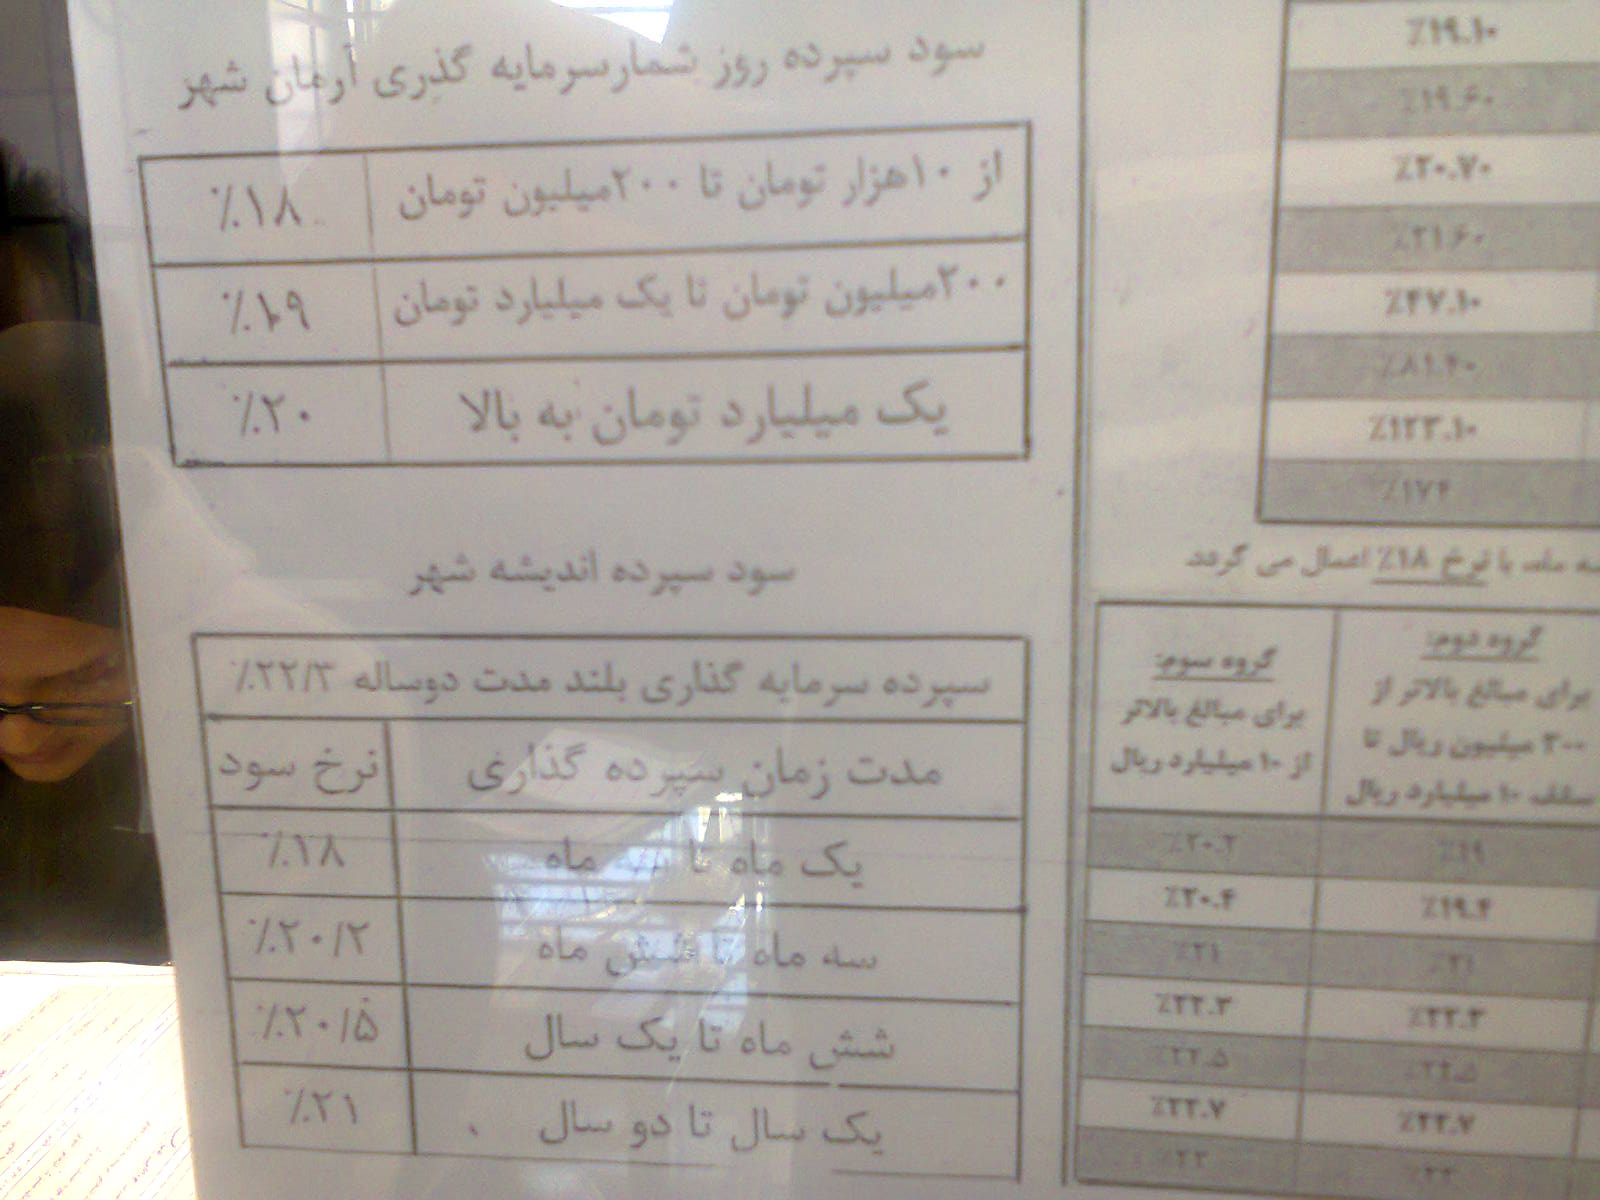 سود سپرده روز شمارسرمایه گذری آرمان شهر
از ۱۰هزار تومان تا ۲۰۰میلیون تومان ٪۱۸
۲۰۰میلیون تومان تا یک میلیارد تومان ٪۱۹
یک میلیارد تومان به بالا ٪۲۰
سود سپرده اندیشه شهر
سپرده سرمایه گذاری بلند مدت دوساله ٪۲۲/۳
مدت زمان سپرده گذاری نرخ سود
یک ماه تا سه ماه ٪۱۸
سه ماه تا شش ماه ٪۲۰/۲
شش ماه تا یک سال ٪۲۰/۵
یک سال تا دو سال ٪۲۱
٪۱۹.۱۰
٪۱۹.۶۰
٪۲۰.۷۰
٪۲۱.۶۰
٪۴۷.۱۰
٪۸۱.۴۰
٪۱۲۳.۱۰
٪۱۷۴
ماه، با نرخ ۱۸٪ اعمال می گردد
گروه دوم:
برای مبالغ بالاتر از
۳۰۰ میلیون ریال تا
سقف ۱۰ میلیارد ریال
گروه سوم:
برای مبالغ بالاتر
از ۱۰ میلیارد ریال
٪۱۹ ٪۲۰.۲
٪۱۹.۴ ٪۲۰.۴
٪۲۱ ٪۲۱
٪۲۲.۳ ٪۲۲.۳
٪۲۲.۵ ٪۲۲.۵
٪۲۲.۷ ٪۲۲.۷
٪۲۳